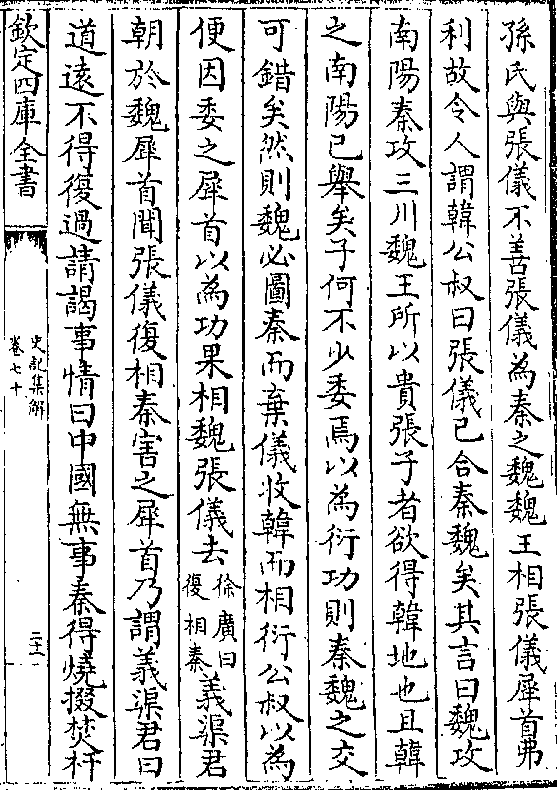 孫氏與張儀不善張儀為秦之魏魏王相張儀犀首弗
利故令人謂韓公叔曰張儀已合秦魏矣其言曰魏攻
南陽秦攻三川魏王所以貴張子者欲得韓地也且韓
之南陽已舉矣子何不少委焉以為衍功則秦魏之交
可錯矣然則魏必圖秦而棄儀收韓而相衍公叔以為
便因委之犀首以為功果相魏張儀去徐廣曰復相秦義渠君
朝於魏犀首聞張儀復相秦害之犀首乃謂義渠君曰
道遠不得復過請謁事情曰中國無事秦得燒掇焚杅
欽定四庫全書
史記集解
卷七十
二十一